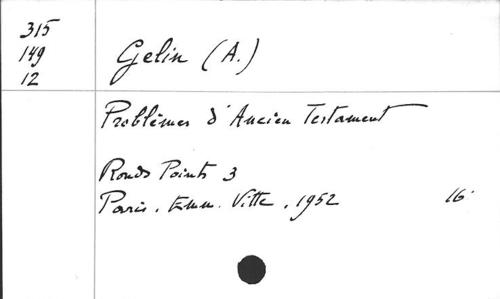 315
149
12
Gelin (A.)
Problèmes d'Ancien Testament
Ronds Points 3
Paris. Emm. Vitte, 1952 16°